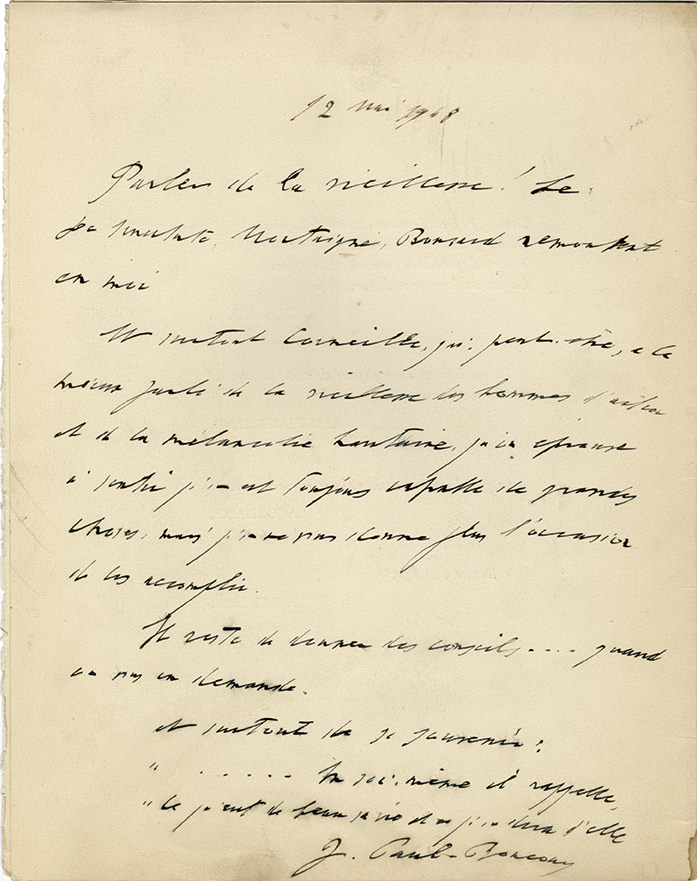 12 Mai 1948
Parler de la vieillesse! Le
Montaigne, Ronsard remontent
en moi
Et surtout Corneille, qui, peut-être, a le
mieux parlé de la vieillesse des hommes d'action
et de la mélancolie hautaine, qu'on éprouve
à sentir qu'on est toujours capable de grandes
choses, mais qu'on ne vous donne plus l'occasion
de les accomplir.
Il reste de donner des conseils .... quand
on vous en demande.
et surtout de se souvenir:
" . . . . . . en soi-même et rappelle,
"Ce qu'eut de beau sa vie et on d'elle
J. Paul-Boncour